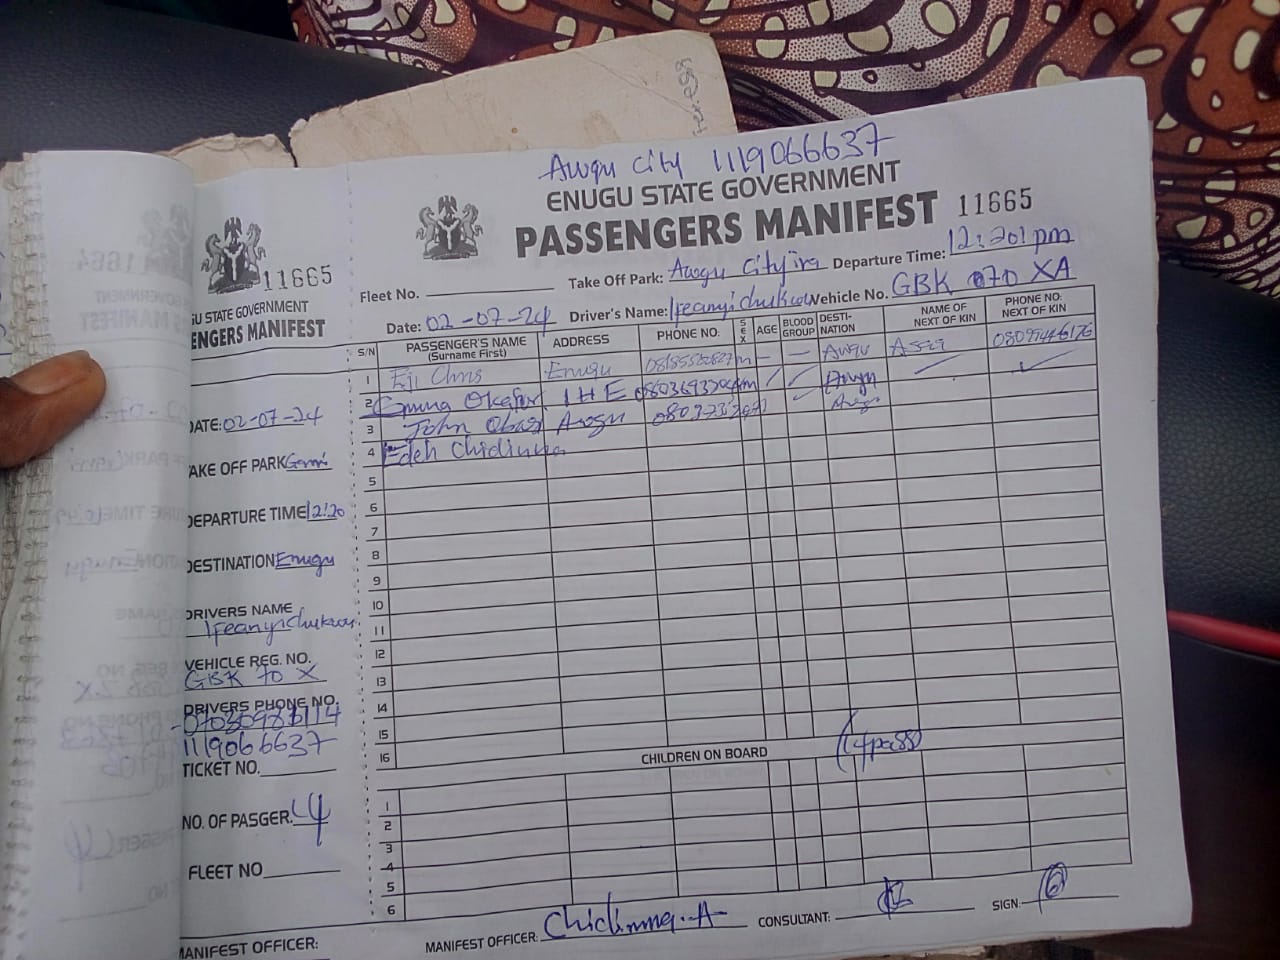 Awgu City 1119066637
ENUGU STATE GOVERNMENT
PASSENGERS MANIFEST 11665
Fleet No. Take Off Park: Awgu City Departure Time: 12:20 pm
Date: 02-07-24 Driver's Name: Ifeanyichukwu Vehicle No. GBK 070 XA
S/N PASSENGER'S NAME (Surname First) ADDRESS PHONE NO. SEX AGE BLOOD GROUP DESTI-NATION NAME OF NEXT OF KIN PHONE NO. NEXT OF KIN
1 Eji Chris Enugu m — — Awgu
2 Okafor m Awgu
3 John Awgu
4 Edeh Chidinma
5
6
7
8
9
10
11
12
13
14
15
16
CHILDREN ON BOARD (4pass)
1
2
3
4
5
6
MANIFEST OFFICER: Chidinma. A CONSULTANT: SIGN:
11665
GU STATE GOVERNMENT
ENGERS MANIFEST
DATE: 02-07-24
AKE OFF PARK
DEPARTURE TIME 12:20
DESTINATION Enugu
DRIVERS NAME
Ifeanyichukwu
VEHICLE REG. NO.
GBK 70 X
DRIVERS PHONE NO.
1119066637
TICKET NO.
NO. OF PASGER. 4
FLEET NO
MANIFEST OFFICER: